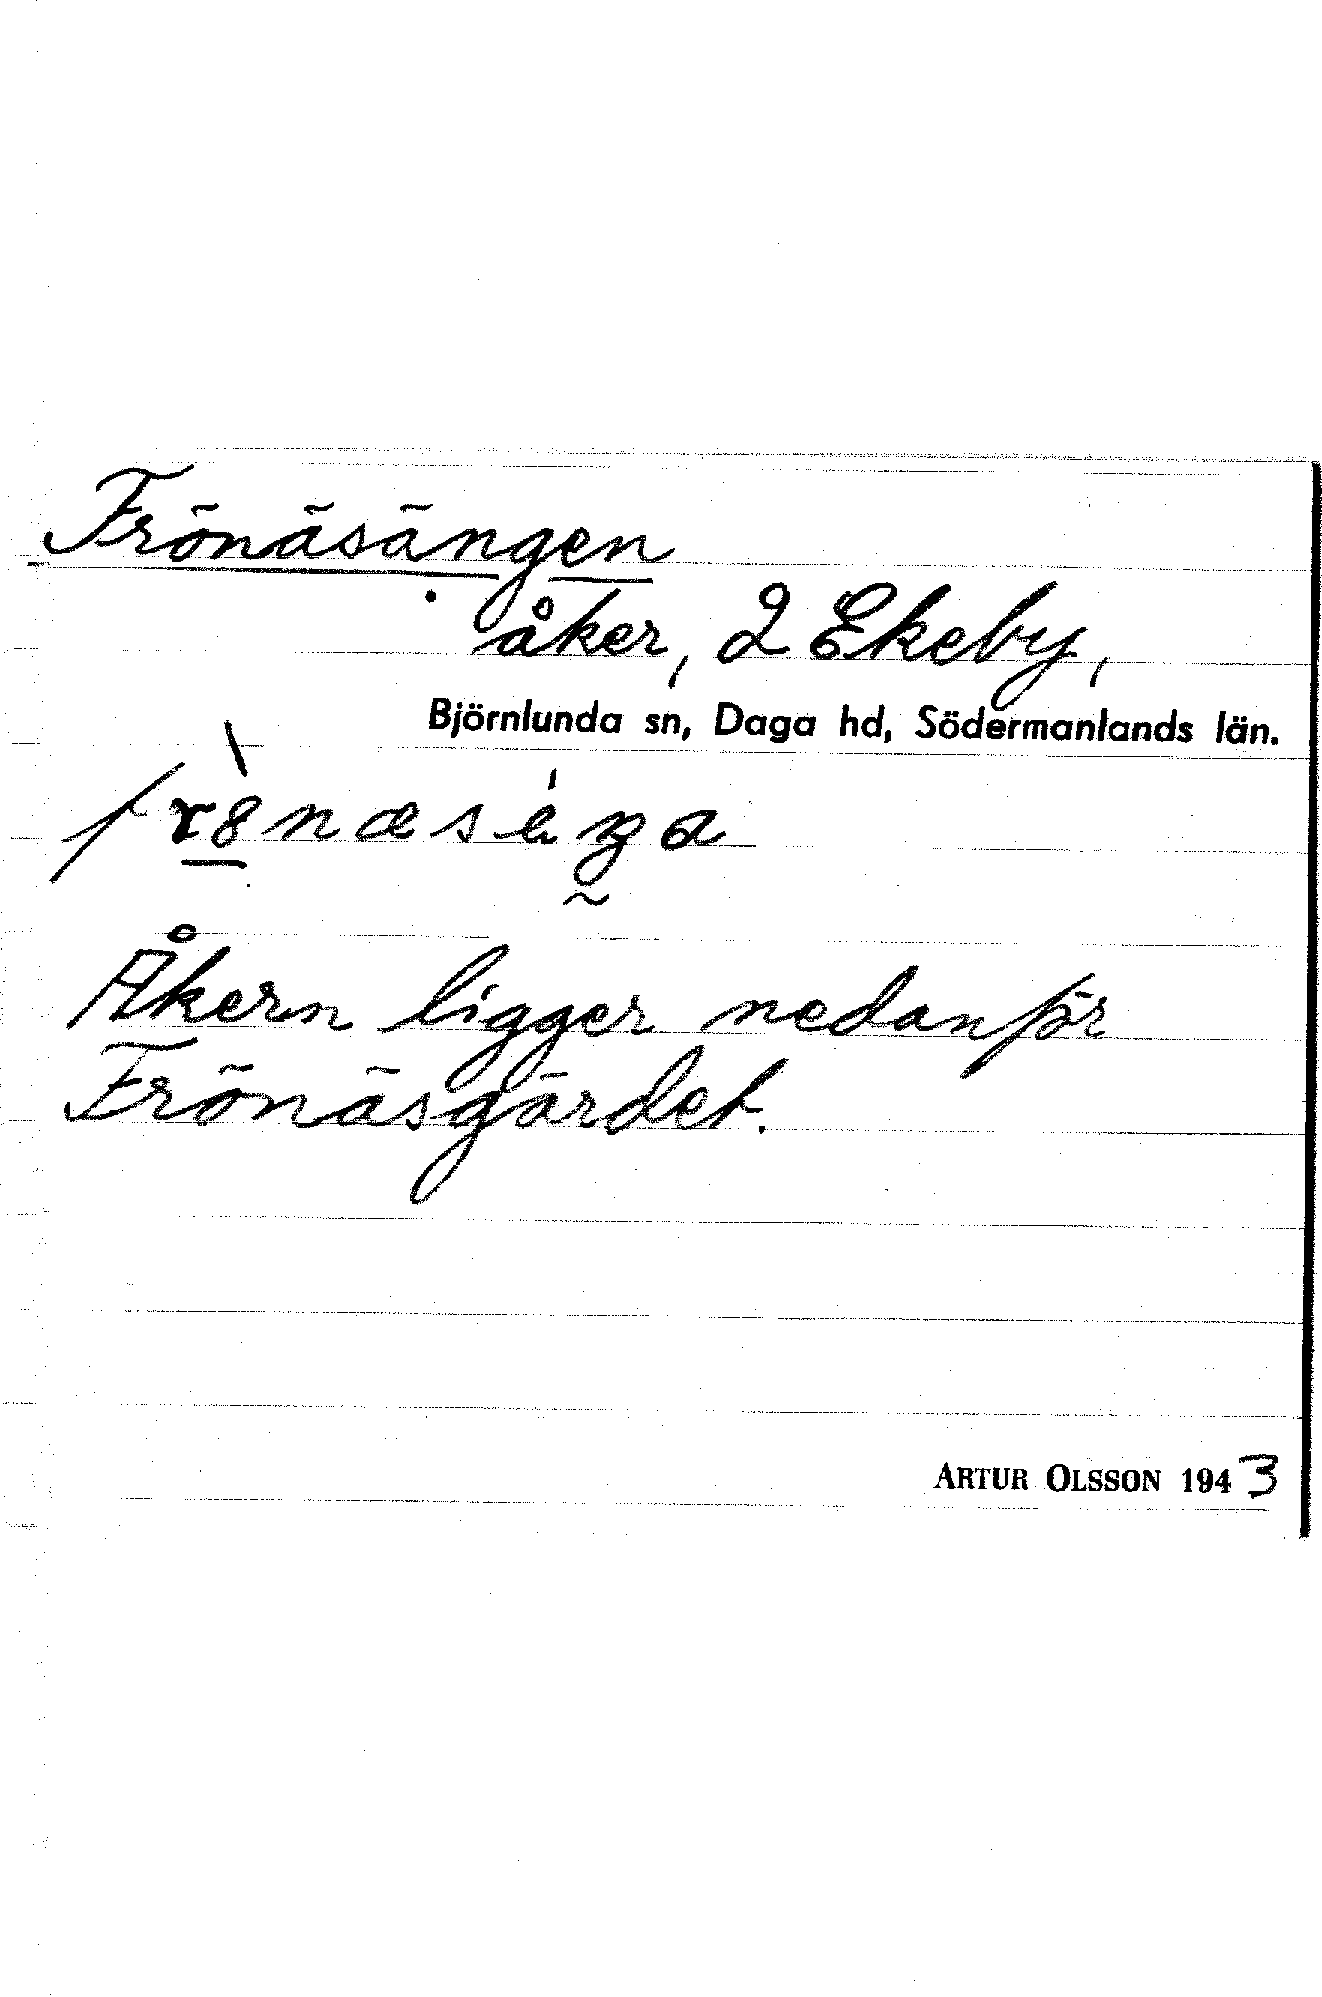 Frönäsängen
åker, 2 Ekeby,
Björnlunda sn, Daga hd, Södermanlands län.
Åkern ligger nedanför
Frönäsgärdet.
ARTUR OLSSON 1943